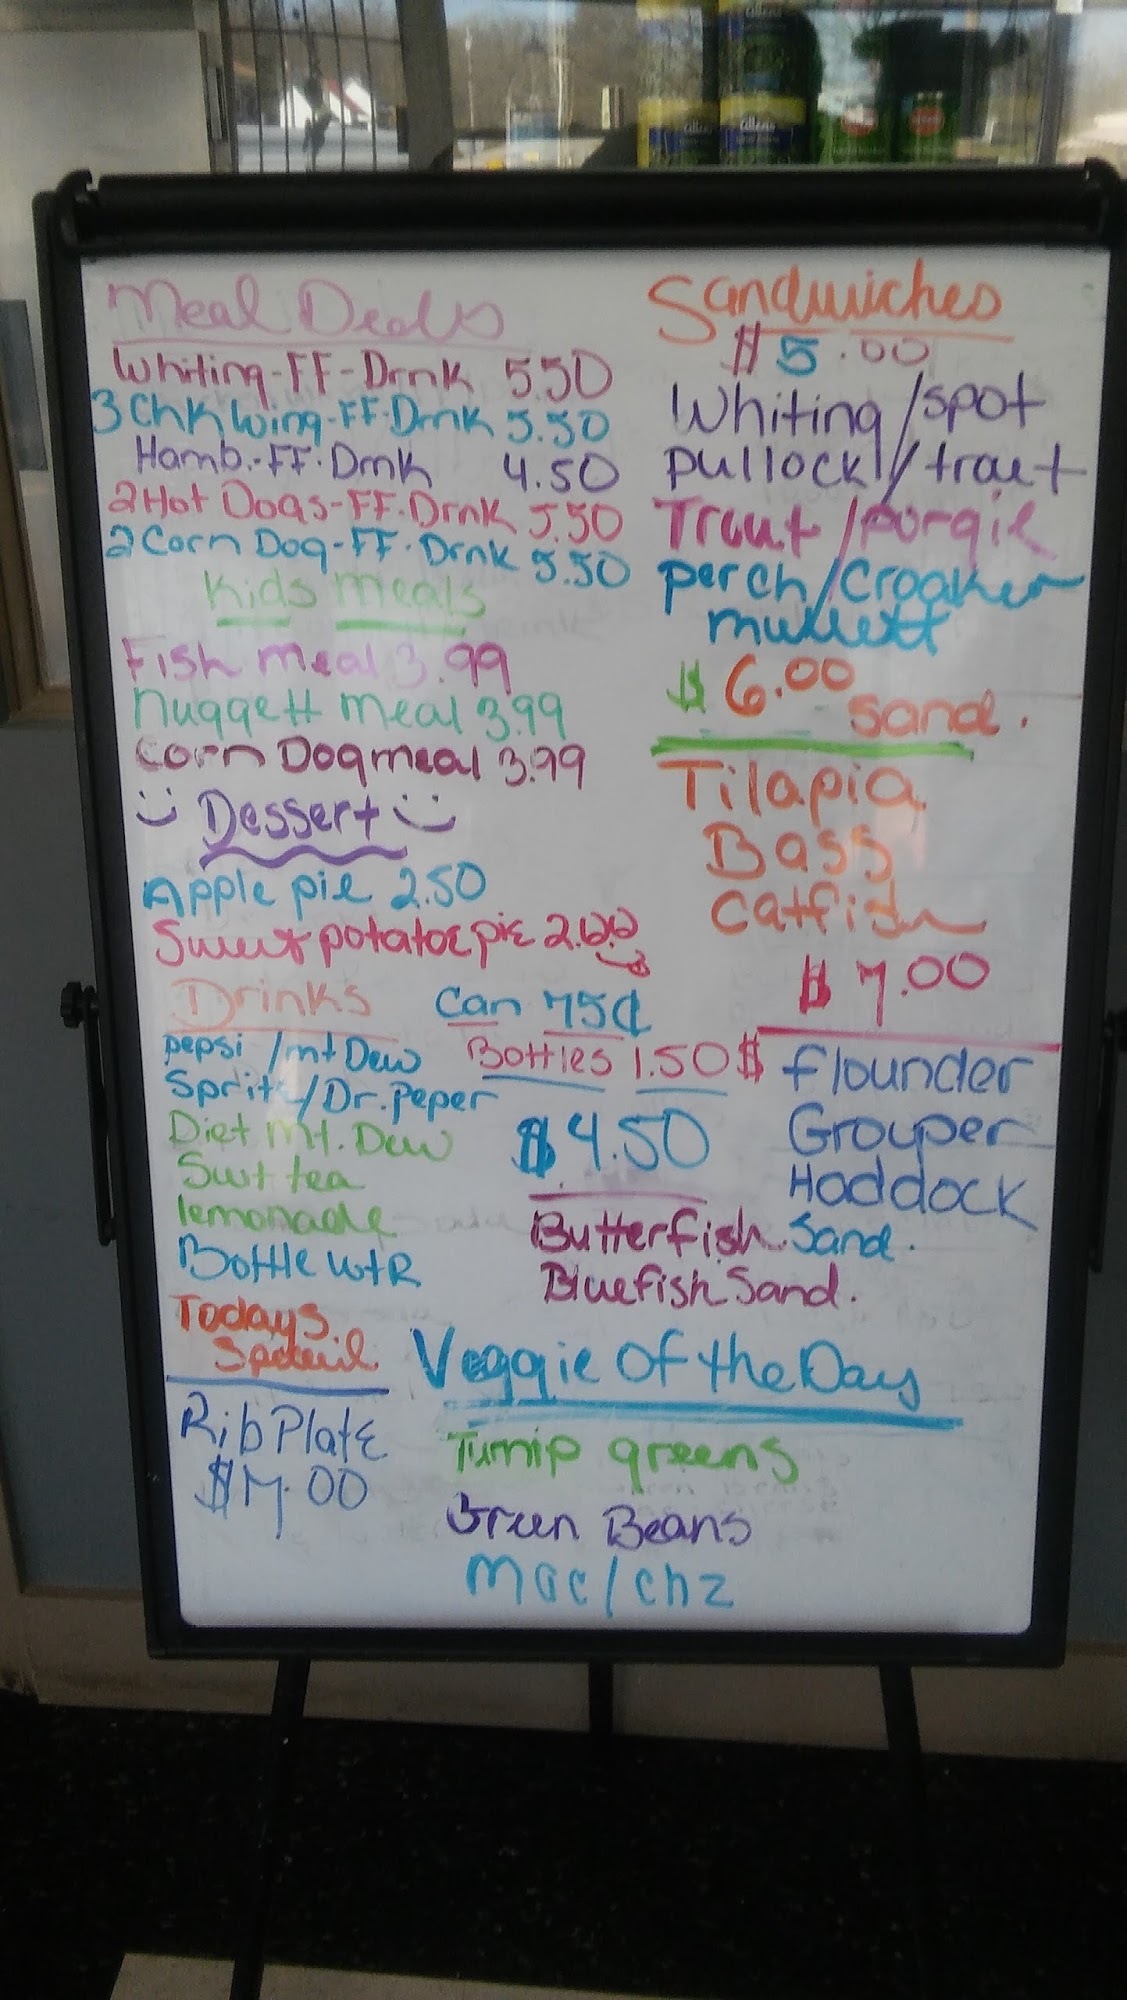 Meal Deals
Whiting-FF-Drnk 5.50
3 Chk Wing-FF-Drnk 5.50
Hamb.-FF-Drnk 4.50
2 Hot Dogs-FF-Drnk 5.50
2 Corn Dog-FF-Drnk 5.50
Kids meals
Fish meal 3.99
Nuggett meal 3.99
Corn Dog meal 3.99
Dessert
Apple pie 2.50
Sweet potatoe pie 2.00
Drinks
Can 75¢
pepsi/mt Dew
Bottles 1.50$
Sprite/Dr. Peper
Diet Mt. Dew
Swt tea
lemonade
Bottle wtR
Todays
Special
Rib Plate
$7.00
Sandwiches
$5.00
Whiting/spot
pullock//trout
Trout/porgie
perch/Croaker
mullett
$6.00
Sand.
Tilapia
Bass
Catfish
$7.00
Flounder
Grouper
Haddock
Sand.
$4.50
Butterfish
Bluefish Sand.
Veggie Of the Day
Turnip greens
Green Beans
Mac/chz